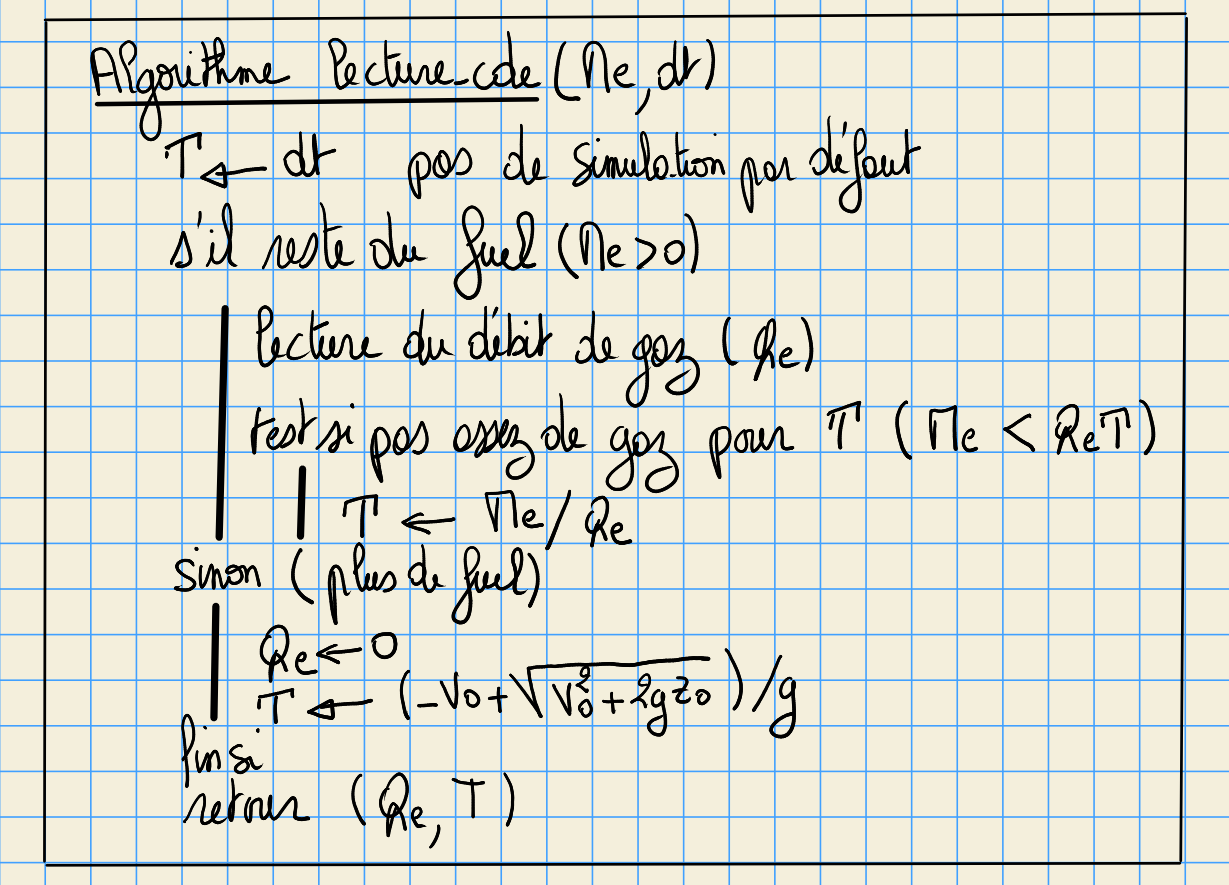 Algorithme lecture-code (Me, dt)
T ← dt pas de simulation par défaut
s'il reste du fuel (Me > 0)
lecture du débit de gaz (Qe)
test si pas assez de gaz pour T (Me < QeT)
T ← Me / Qe
sinon (plus de fuel)
Qe ← 0
T ← (-V0 + √(V0² + 2gz0)) / g
fin si
retour (Qe, T)